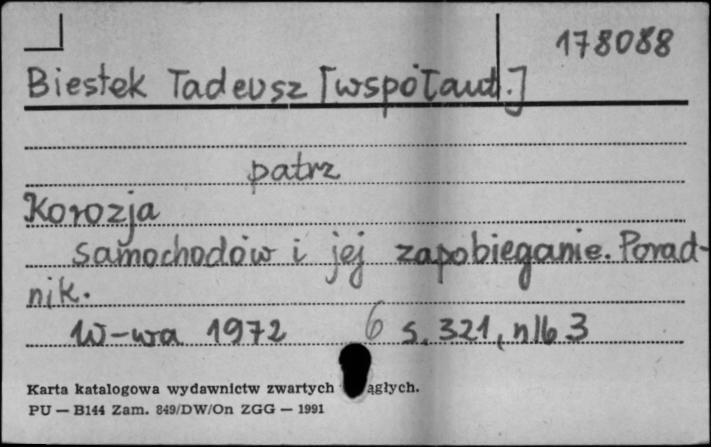 178088
Biestek Tadeusz [współaut.]
patrz
Korozja
samochodów i jej zapobieganie. Porad-
nik.
W-wa 1972 6 s. 321, nlb 3
Karta katalogowa wydawnictw zwartych
PU — B144 Zam. 849/DW/On ZGG — 1991